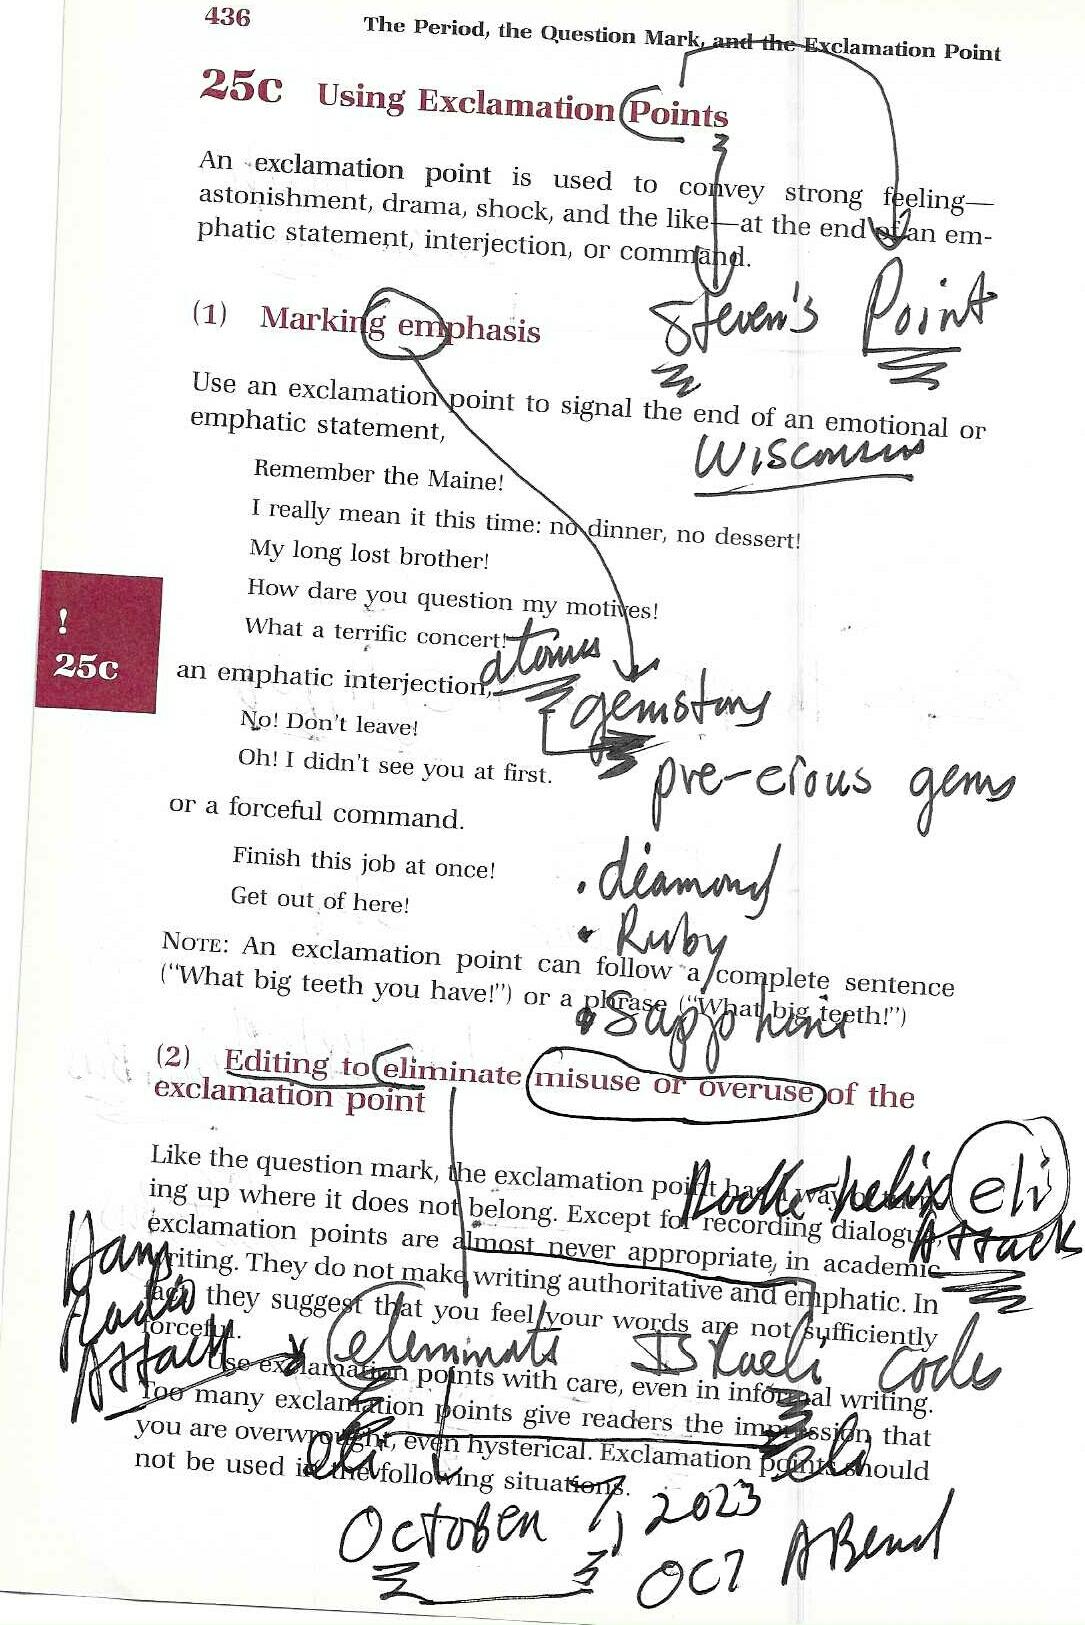 436 The Period, the Question Mark, and the Exclamation Point
25c Using Exclamation Points
An exclamation point is used to convey strong feeling—
astonishment, drama, shock, and the like—at the end of an em-
phatic statement, interjection, or command.
Steven's Point
(1) Marking emphasis
Use an exclamation point to signal the end of an emotional or
emphatic statement,
Wisconsin
Remember the Maine!
I really mean it this time: no dinner, no dessert!
My long lost brother!
How dare you question my motives!
What a terrific concert!
an emphatic interjection,
gemstons
No! Don't leave!
Oh! I didn't see you at first.
pre-cious gems
or a forceful command.
Finish this job at once!
• diamond
Get out of here!
• Ruby
NOTE: An exclamation point can follow a complete sentence
("What big teeth you have!") or a phrase ("What big teeth!")
(2) Editing to eliminate misuse or overuse of the
exclamation point
Like the question mark, the exclamation point has a way of
ing up where it does not belong. Except for recording dialogue,
eli
exclamation points are almost never appropriate in academic
Attack
writing. They do not make writing authoritative and emphatic. In
fact they suggest that you feel your words are not sufficiently
forceful.
Radio
Attack
Israeli codes
Use exclamation points with care, even in informal writing.
Too many exclamation points give readers the impression that
you are overwrought, even hysterical. Exclamation points should
eli eli
not be used in the following situations.
October 7, 2023
OCT ABend
!
25c